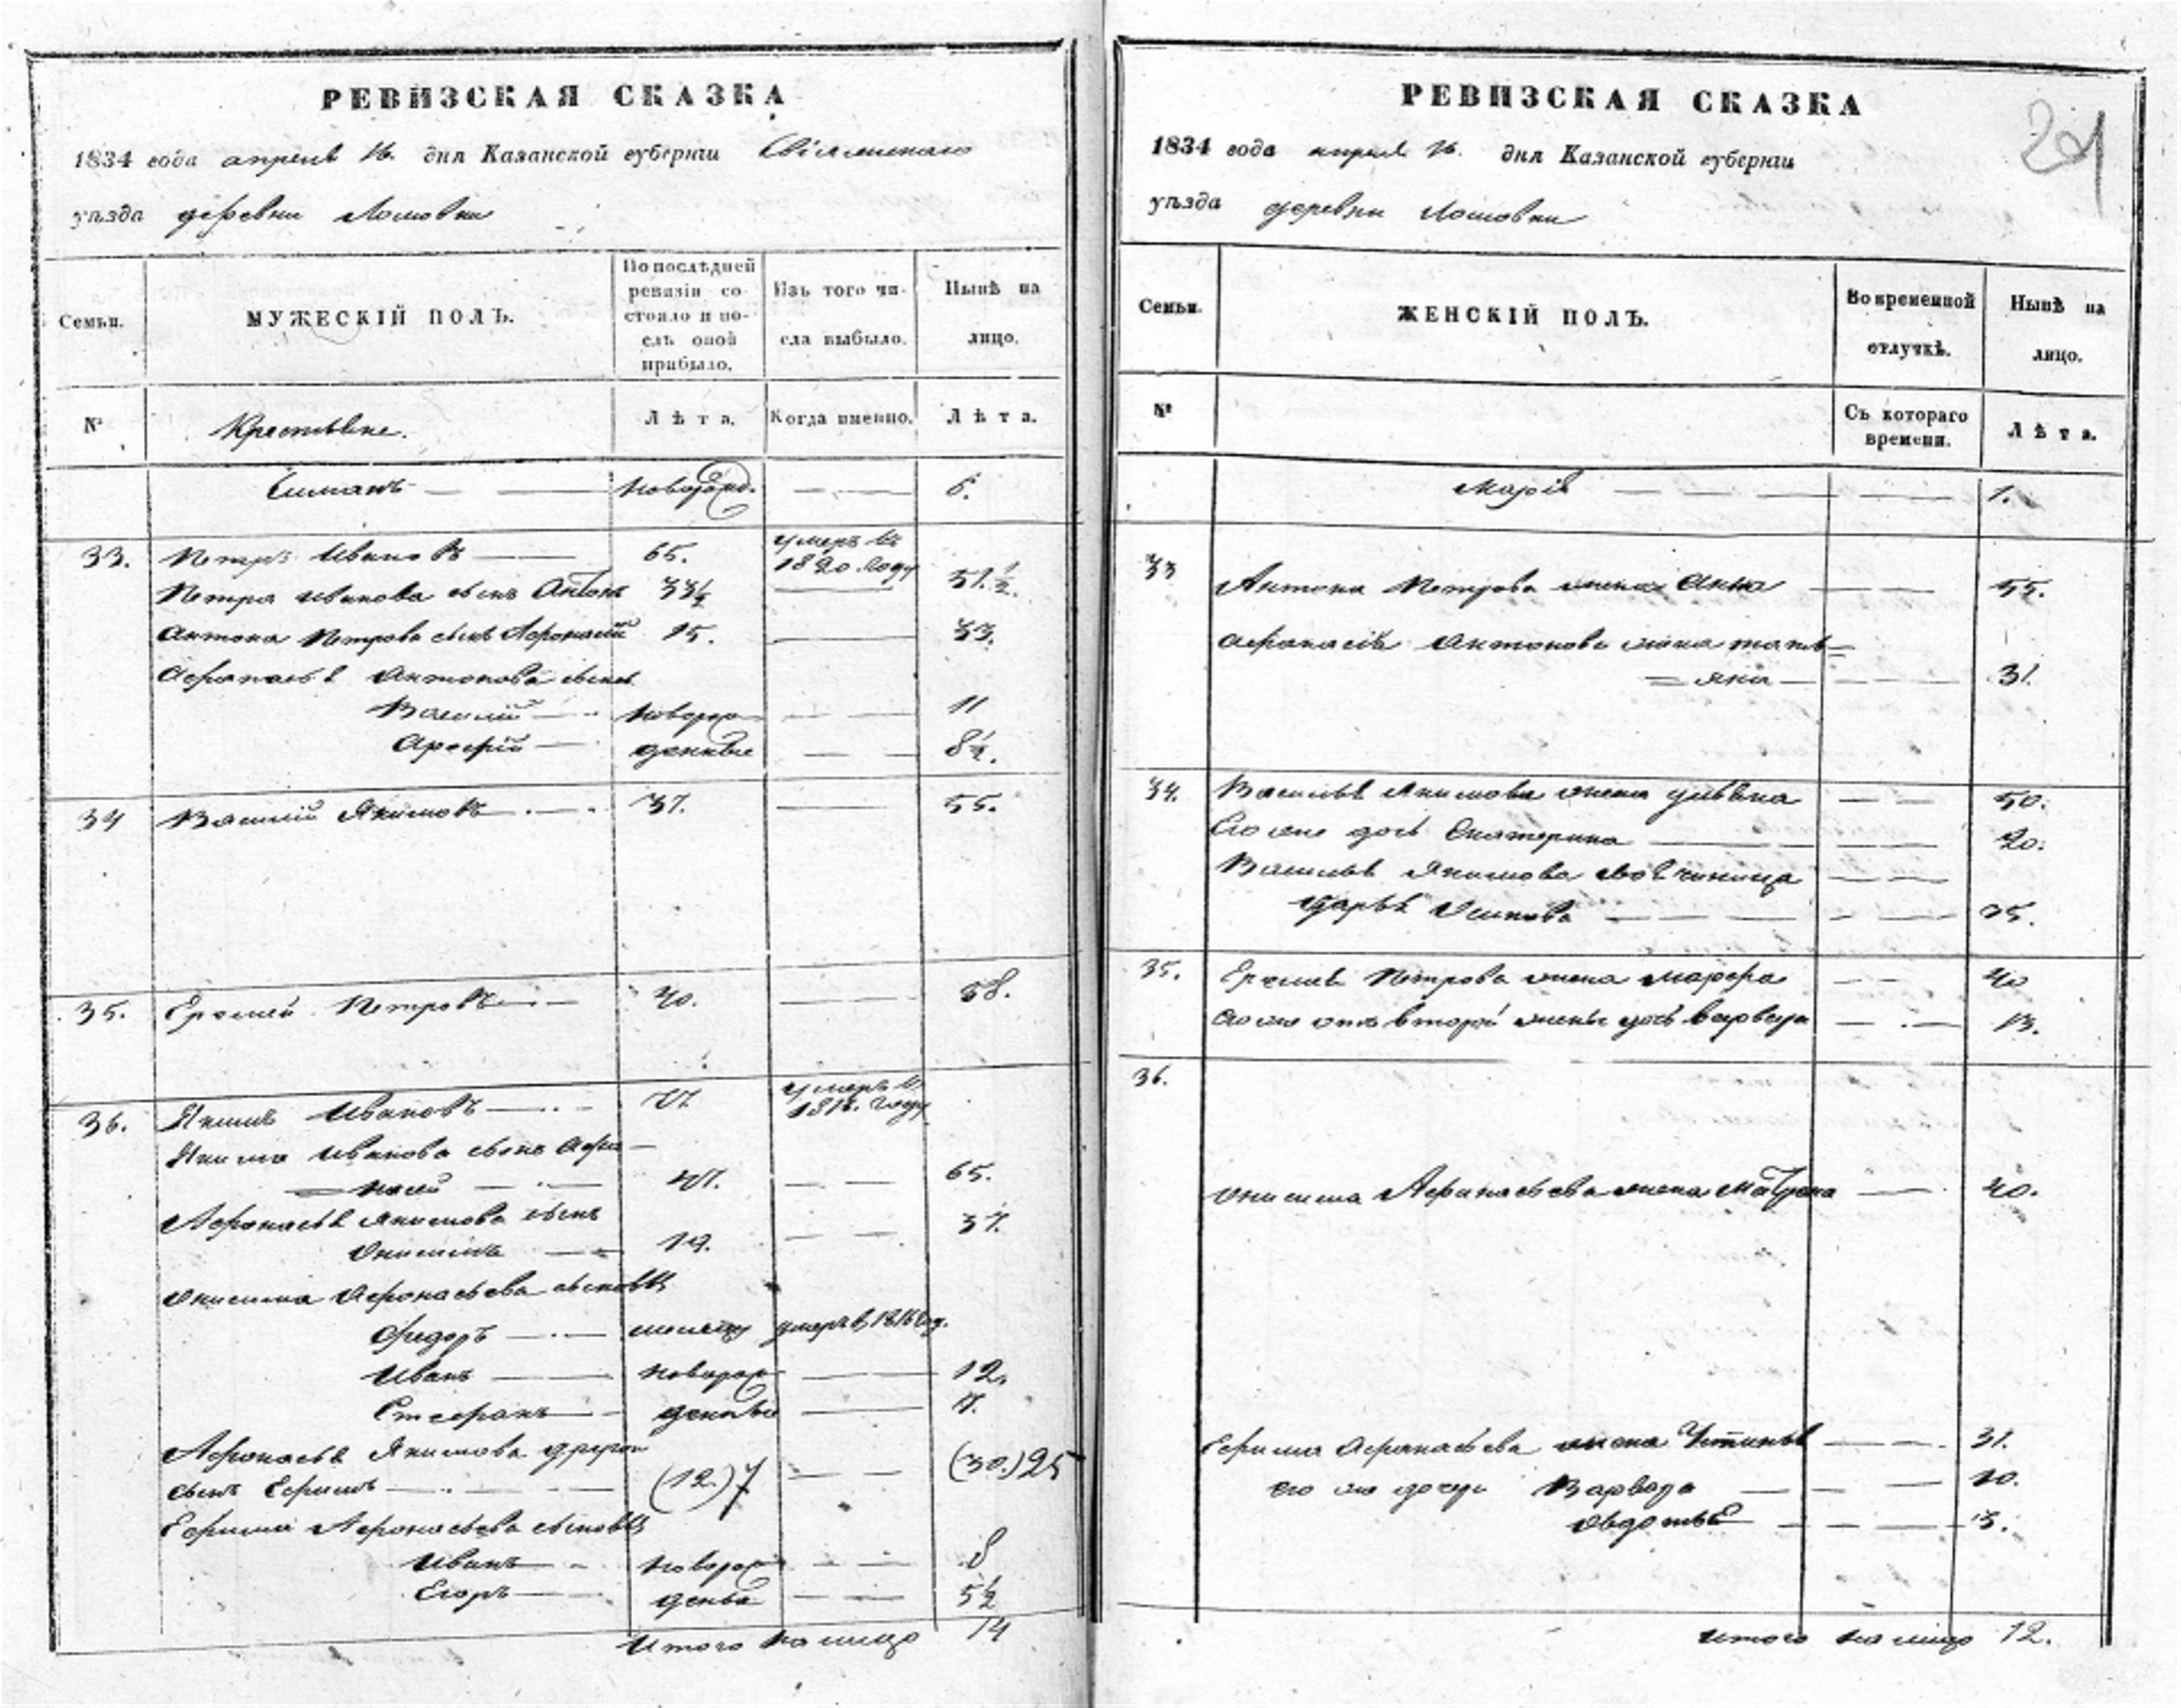 РЕВИЗСКАЯ СКАЗКА
1834 года апреля 16. дня Казанской губернiи Свiяжскаго
уѣзда деревни Ломовки
Семьи.
МУЖЕСКIЙ ПОЛЪ.
По послѣдней ревизiи состояло и послѣ оной прибыло.
Изъ того числа выбыло.
Нынѣ на лицо.
№
Крестьяне.
Лѣта.
Когда именно.
Лѣта.
Симанъ — новорожд. — 6.
33. Петръ Ивановъ — 65. умеръ въ 1820. году
Петра Иванова сынъ Антонъ 33½ — 51.½.
Антона Петрова сынъ Афонасiй 15. — 33.
Афанасья Антонова сынъ
Василiй — новорож — 11
Арефiй — денные — 8½.
34 Василiй Якимовъ — 37. — 55.
35. Еремей Петровъ — 40. — 58.
36. Якимъ Ивановъ — умеръ въ году
Якима Иванова сынъ Афа—
=насей — 47. — 65.
Афонасья Якимова сынъ
Онисимъ — 19. — 37.
Онисима Афонасьева сыновья
Федоръ — умеръ в 1816 году.
Иванъ — новорож — 12.
Стефанъ — денные — 7.
Афонасья Якимова другой
сынъ Ефимъ — (12.) 7 — (30.) 25
Ефима Афонасьева сыновья
Иванъ — новорож — 8
Егоръ — денные — 5½
Итого на лицо 14
РЕВИЗСКАЯ СКАЗКА
1834 года апреля 16. дня Казанской губернiи
уѣзда деревни Ломовки
Семьи.
ЖЕНСКIЙ ПОЛЪ.
Во временной отлучкѣ.
Нынѣ на лицо.
№
Съ котораго времени.
Лѣта.
Марiя — 1.
33 Антона Петрова жена Анна — 55.
Афанасiя Антонова жена тать=
=яна — 31.
34. Василья Якимова жена Ульяна — 50.
Его же дочь Екатерина — 20.
Василья Якимова своячиница
Дарья Осипова — 35.
35. Еремея Петрова жена Марфа — 40
Его же отъ второй жены дочь Варвара — 13.
36.
Онисима Афанасьева жена Матрена — 40.
Ефима Афанасьева жена Устинья — 31.
его же дочери Варвара — 10.
Овдотья — 3.
Итого на лицо 12.